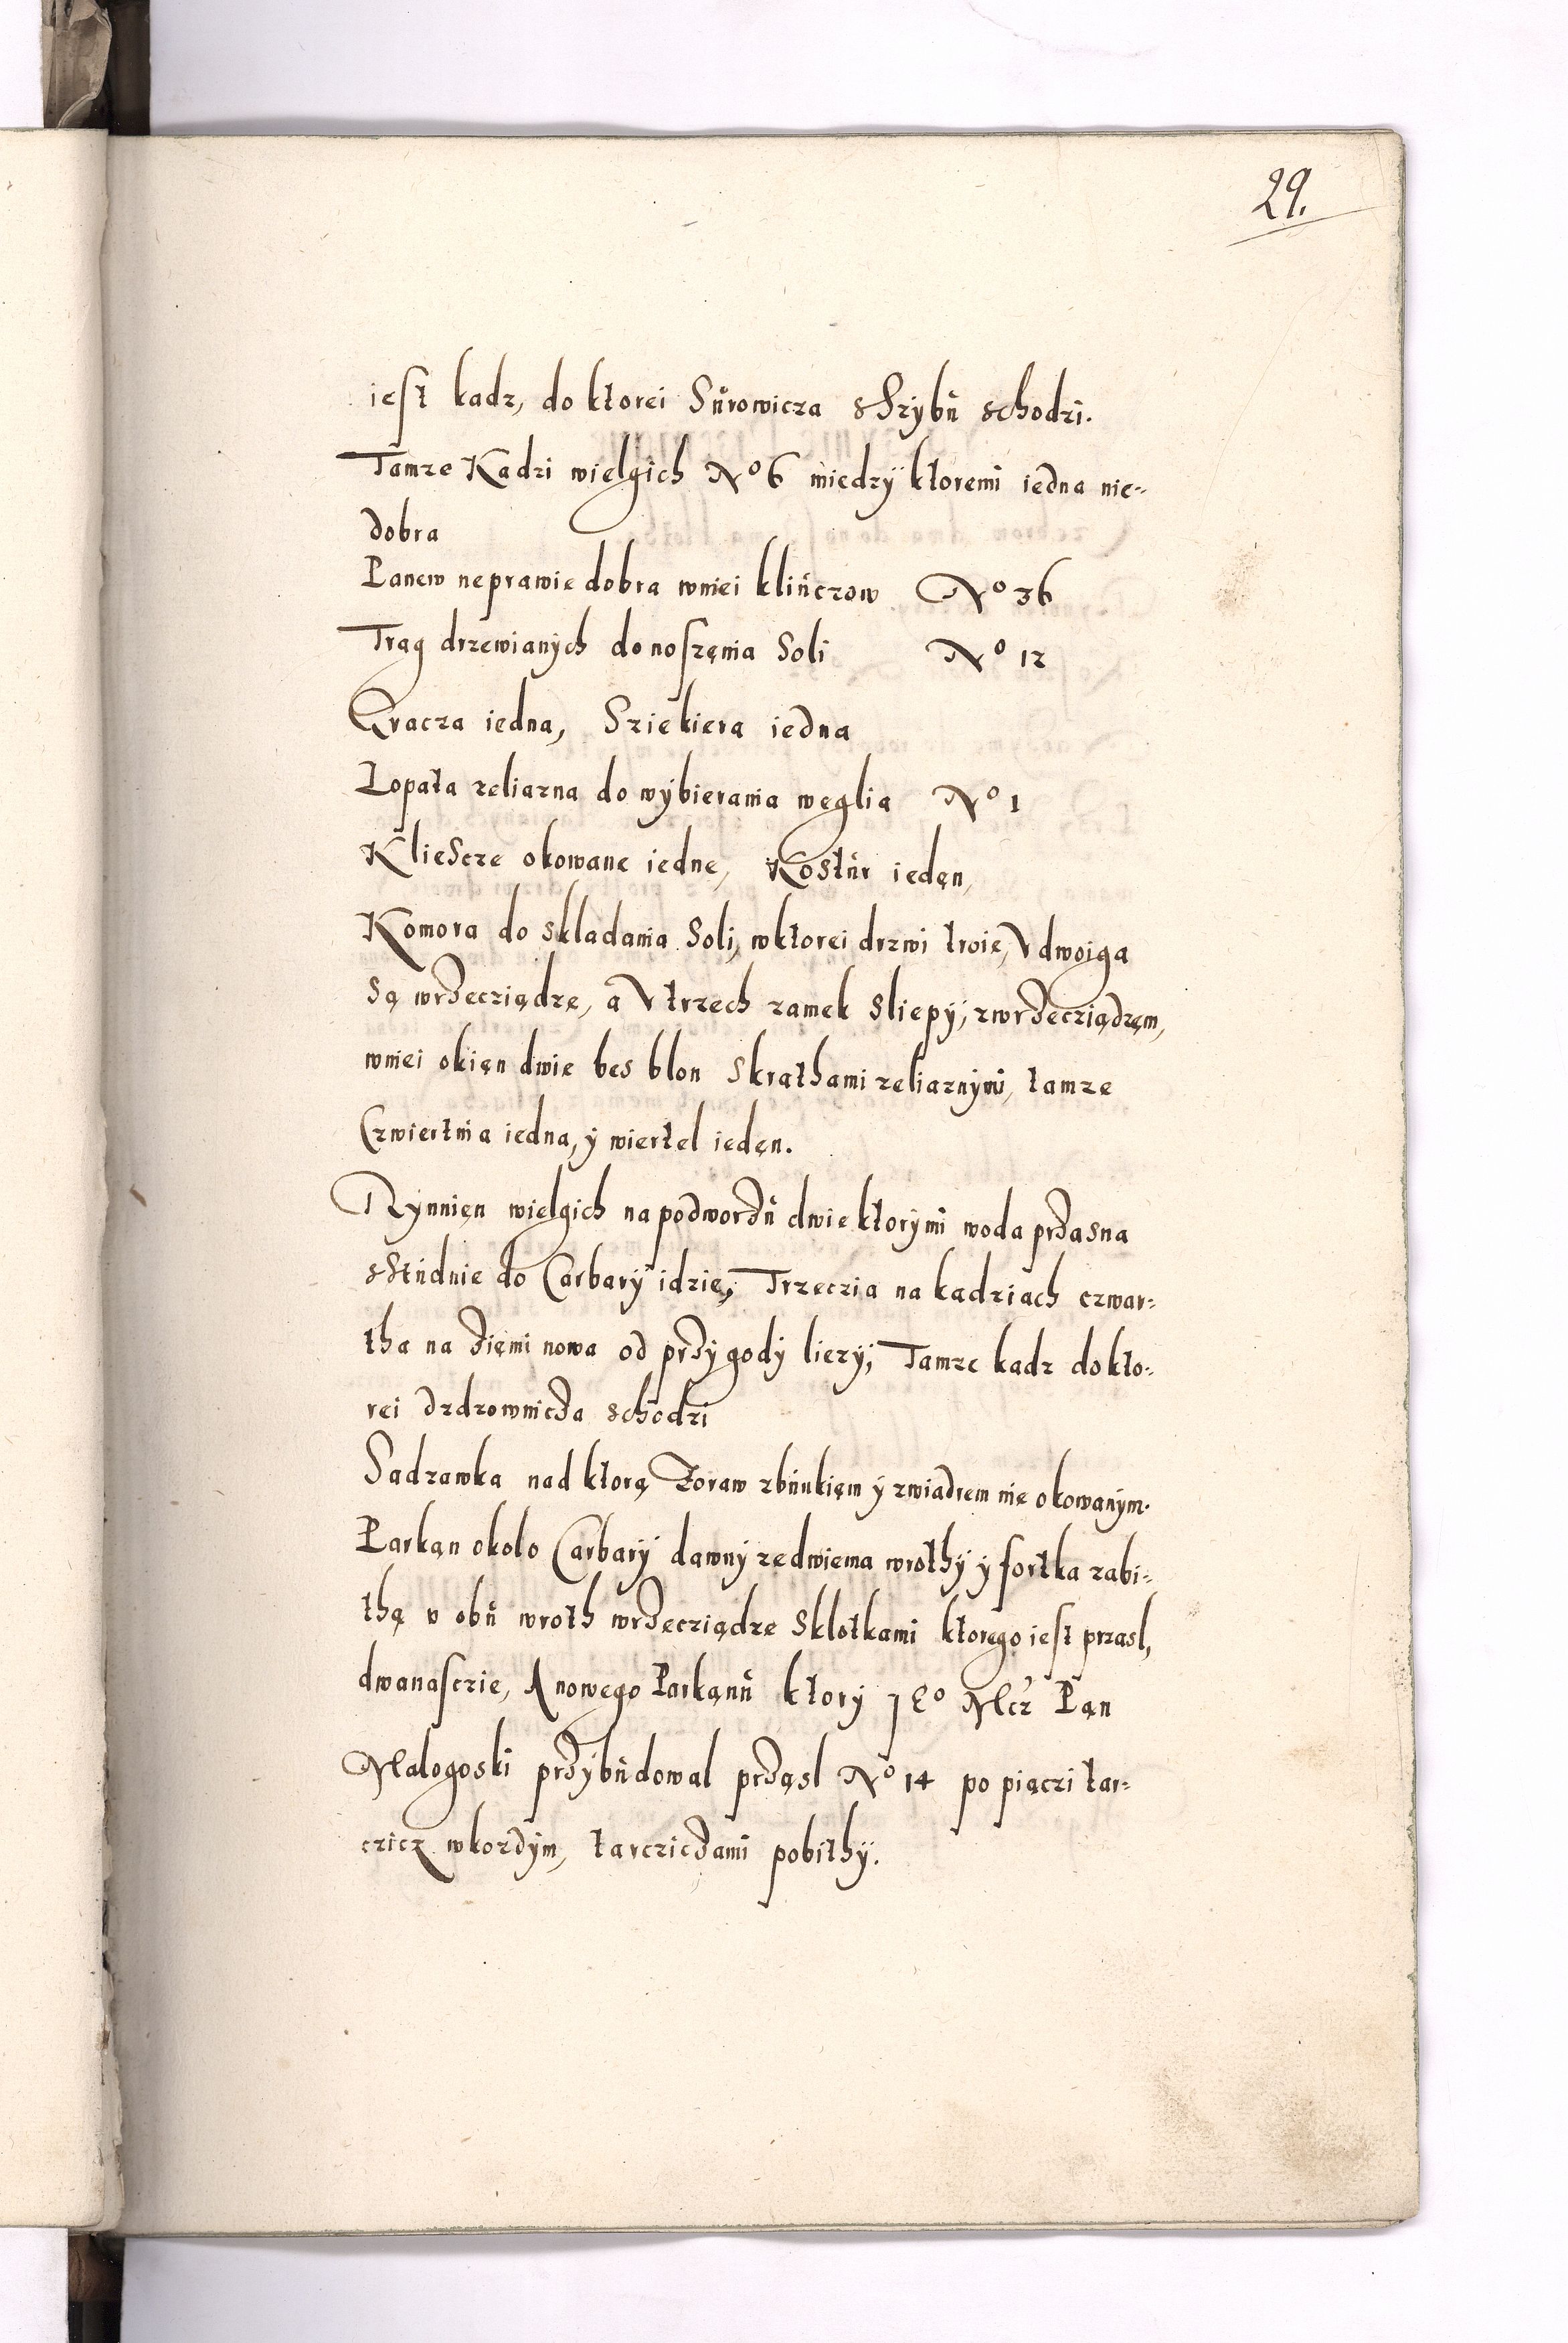 29.
iest kadz, do ktorei Surowicza sSzybu schodzi.
Tamze Kadzi wielgich No 6 miedzy ktoremi iedna nie-
dobra
Panew neprawie dobra wniei klinczow No 36
Trag drzewianych do noszęnia Soli No 12
Gracza iedna, Sziekiera iedna
Lopata zeliazna do wybierania węglia No 1
KlieScze okowane iedne, Kostur iedęn,
Komora do skladania Soli, wktorei drzwi troie, V dwoiga
Są wrzecziądze, a V trzech zamek sliepy, zwrzecziądzęm,
wniei okięn dwie bes blon skrathami zeliaznymi, tamze
Czwiertnia iedna, y wiertel iedęn.
Rynnięn wielgich na podworzu dwie ktorymi woda przasna
sStudnie do Carbary idzie, Trzeczia na kadziach czwar-
tha na ziemi nowa od przygody liezy, Tamze kadz do kto-
rei Dzdzownicza schodzi
Sadzawka nad ktorą Zoraw zbunkięm y zwiadrem nie okowanym.
Parkan okolo Carbary dawny zedwiema wrothy y fortka zabi-
thą v obu wroth wrzecziądze Sklotkami ktorego iest przasl,
dwanasczie, A nowego Parkanu ktory JEo Mcz Pan
Malogoski przybudowal przasl No 14 po piączi tar-
czicz wkozdym, tarcziczami pobithy.